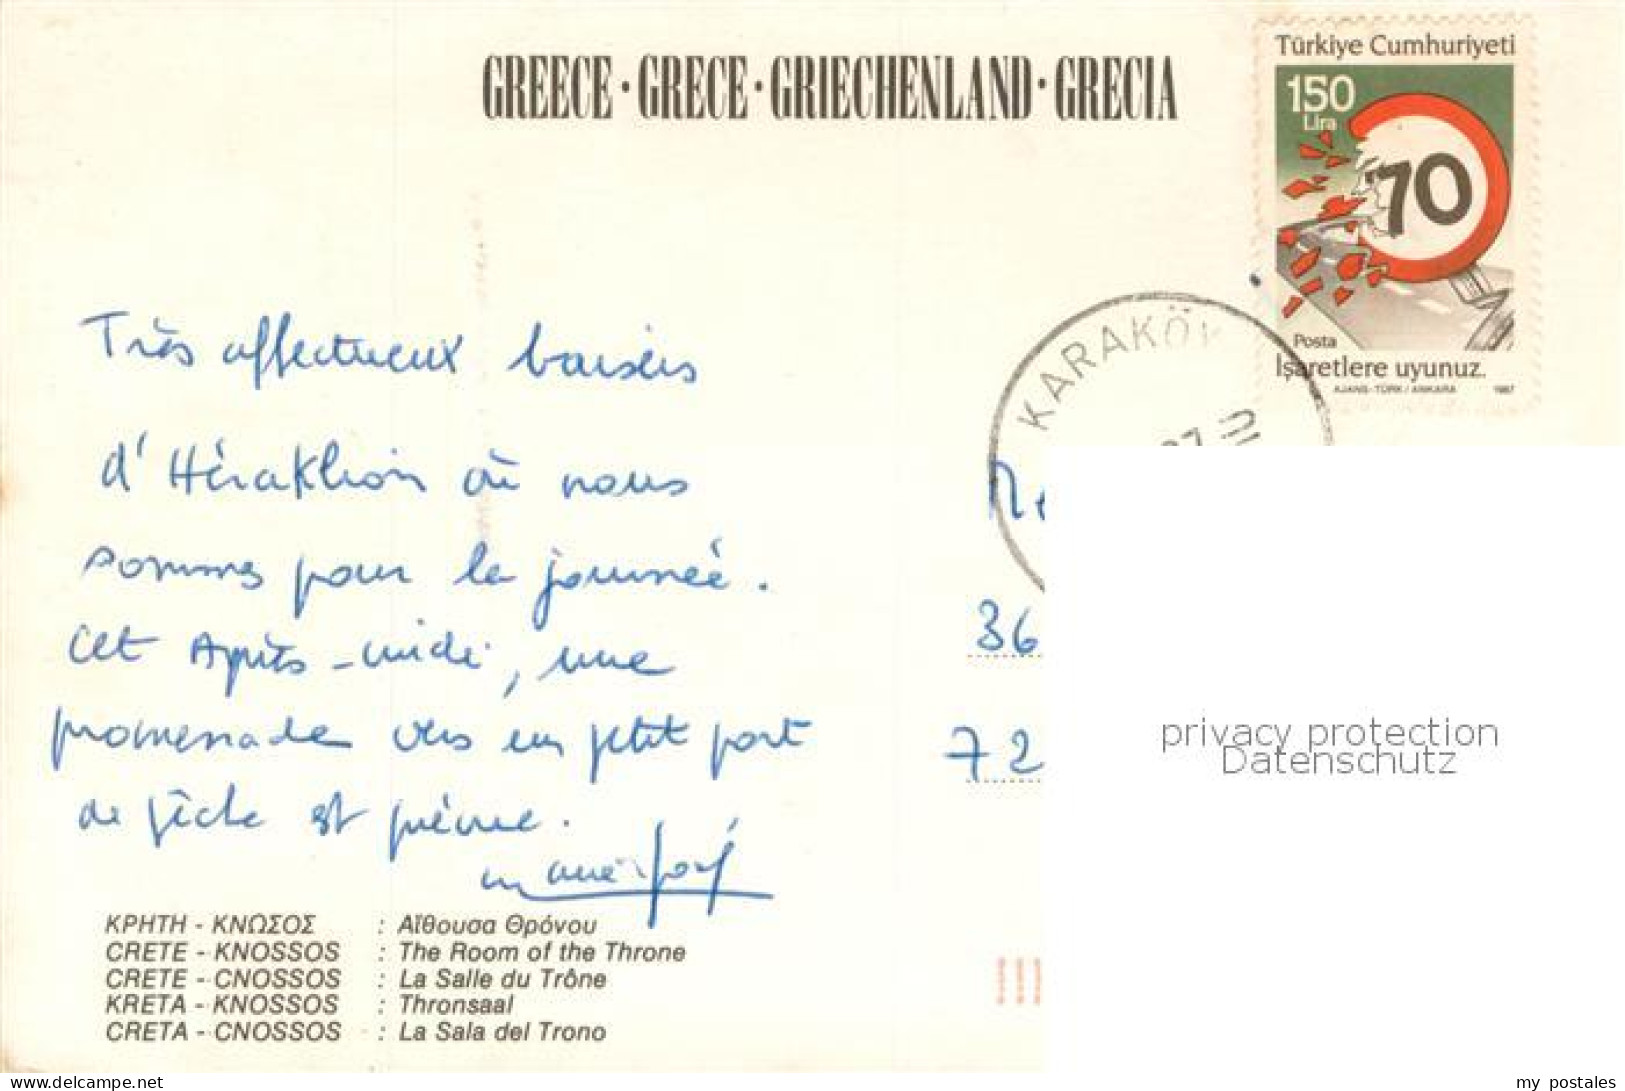 GREECE · GRECE · GRIECHENLAND · GRECIA
Türkiye Cumhuriyeti
150
Lira
70
Posta
İşaretlere uyunuz.
AJANS-TÜRK / ANKARA 1987
KARAKÖY
Très affectueux baisers
d'Héraklion où nous
sommes pour la journée.
Cet Après-midi, une
promenade vers un petit port
de pêche est prévue.
36
72
privacy protection
Datenschutz
ΚΡΗΤΗ - ΚΝΩΣΟΣ : Αἴθουσα Θρόνου
CRETE - KNOSSOS : The Room of the Throne
CRETE - CNOSSOS : La Salle du Trône
KRETA - KNOSSOS : Thronsaal
CRETA - CNOSSOS : La Sala del Trono
my postales